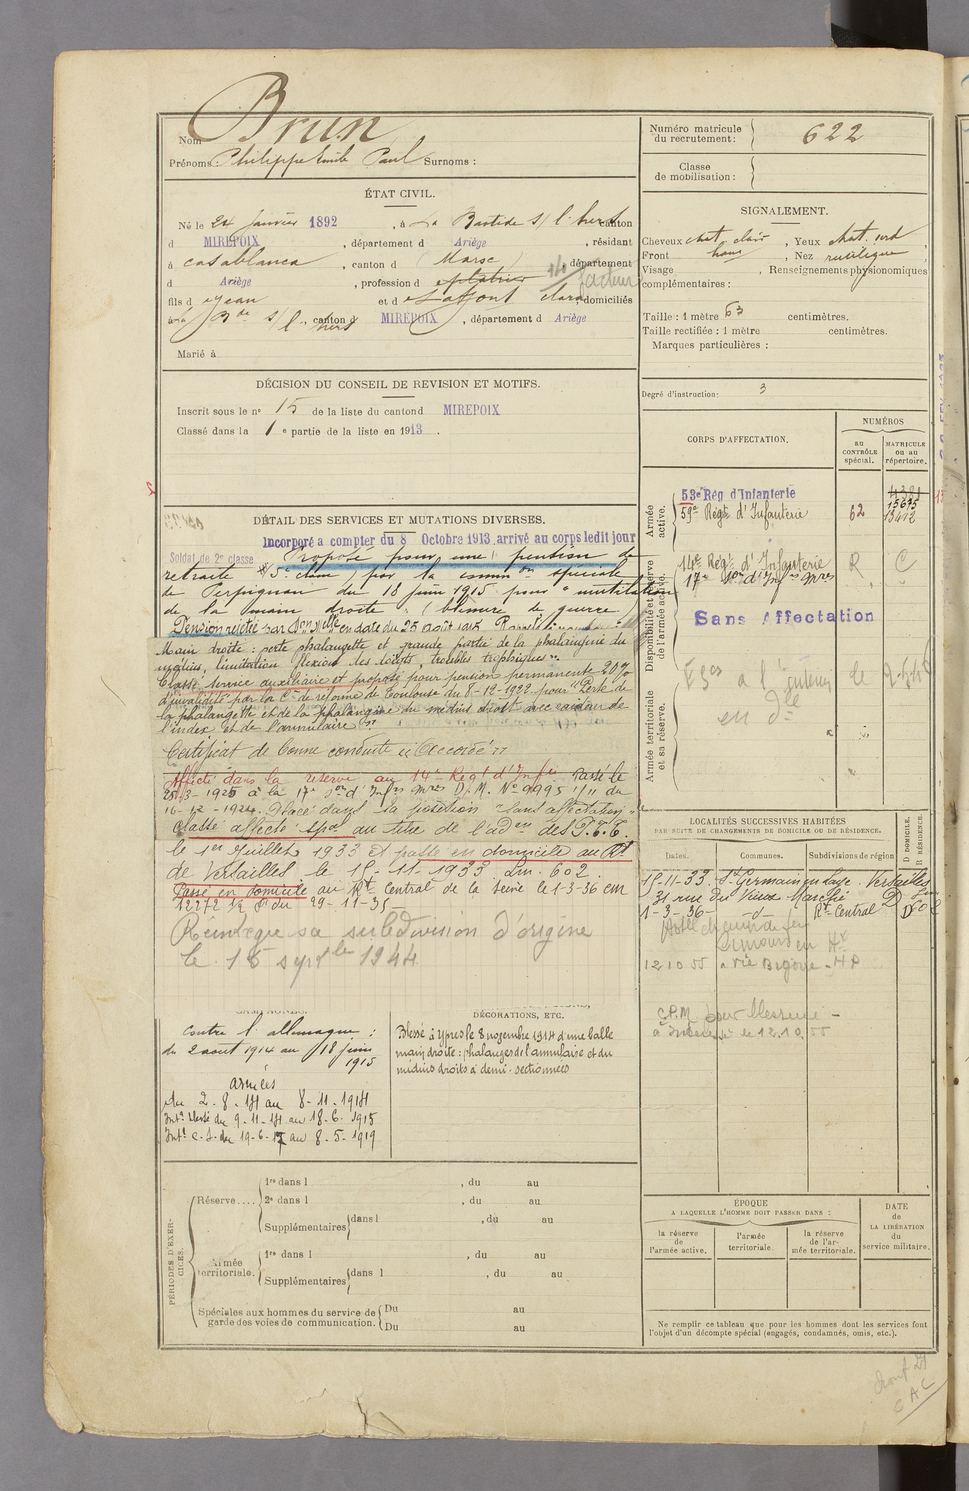 Nom Brun
Prénoms : Philippe Emile Paul Surnoms :
ÉTAT CIVIL.
Né le 24 Janvier 1892, à La Bastide s/ l'hers canton
d MIREPOIX, département d Ariège, résidant
à Casablanca, canton d (Maroc), département
d Ariège, profession d plâtrier facteur
fils d e Jean et d e Lafont Clara domiciliés
à la Bde s/ l'hers, canton d MIREPOIX, département d Ariège
Marié à
DÉCISION DU CONSEIL DE REVISION ET MOTIFS.
Inscrit sous le n° 15 de la liste du canton d MIREPOIX
Classé dans la 1e partie de la liste en 1913.
DÉTAIL DES SERVICES ET MUTATIONS DIVERSES.
Incorporé a compter du 8 Octobre 1913, arrivé au corps ledit jour
Soldat de 2e classe Proposé pour une pension de
retraite 5e classe, par la common spéciale
de Perpignan du 18 juin 1915 pour "mutilation
de la main droite" (blessure de guerre)
Pension rejetée par Don Mlle en date du 25 août 1915
Main droite : perte phalangette et grande partie de la phalangine du
médius, limitation flexion des doigts, troubles trophiques".
Classé service auxiliaire et proposé pour pension permanente 20%
d'invalidité par la Con de réforme de Toulouse du 8-12-1922 pour "Perte de
la phalangette et de la phalangine du médius droit avec raideur de
l'index et de l'annulaire"
Certificat de bonne conduite "Accordé"
Affecté dans la réserve au 14e Regt d'Infie Passé le
25-3-1925 à la 17e Son d'Infrs Mres D.M. N° 9995 1/11 du
16-12-1924. Placé dans la position "sans affectation"
Classé affecté spal au titre de l'adon des P.T.T.
le 1er Juillet 1933 et passe en domicile au Rt
de Versailles le 15-11-1933 Lm. 602
Passé en domicile au Rt Central de la Seine le 1-3-36 CM
12272 1/2 8 du 29-11-35
Remis à sa subdivision d'origine
le 15 septbre 1944
Contre l'allemagne :
du 2 août 1914 au 18 juin
1915
Armées
du 2-8-14 au 8-11-1914
Intr blessé du 9-11-14 au 18-6-1915
Intr C.S. du 19-6-17 au 8-5-1919
DÉCORATIONS, ETC.
Blessé à Ypres le 8 novembre 1914 d'une balle
main droite : phalanges de l'annulaire et du
médius droits à demi-sectionnées
PÉRIODES D'EXERCICES.
Réserve....
1re dans l , du au
2e dans l , du au
Supplémentaires dans l , du au
Armée territoriale.
1re dans l , du au
Supplémentaires dans l , du au
Spéciales aux hommes du service de garde des voies de communication.
Du au
Du au
Numéro matricule du recrutement : 622
Classe de mobilisation :
SIGNALEMENT.
Cheveux chat. clair, Yeux chat. verd
Front haut, Nez rectiligne
Visage , Renseignements physionomiques
complémentaires :
Taille : 1 mètre 63 centimètres.
Taille rectifiée : 1 mètre centimètres.
Marques particulières :
Degré d'instruction : 3
CORPS D'AFFECTATION.
NUMÉROS
au CONTRÔLE spécial.
MATRICULE ou au répertoire.
Armée active.
53e Rég d'Infanterie 4381
15675
59e Régt d'Infanterie 62 13412
Disponibilité et réserve de l'armée active.
14e Régt d'Infanterie R C
17e Son d'Infrs Mres " "
Sans Affectation
Armée territoriale et sa réserve.
LOCALITÉS SUCCESSIVES HABITÉES
PAR SUITE DE CHANGEMENTS DE DOMICILE OU DE RÉSIDENCE.
Dates. Communes. Subdivisions de région D DOMICILE. R RÉSIDENCE.
15-11-33 St Germain en Laye Versailles
31 rue du Vieux Marché D
1-3-36 -d- Rt Central D
Hotel chemin de fer
12 10 55 Vic Bigorre - HP
C.P.M. pour blessure -
ÉPOQUE
A LAQUELLE L'HOMME DOIT PASSER DANS :
la réserve de l'armée active.
l'armée territoriale
la réserve de l'armée territoriale.
DATE de LA LIBÉRATION du service militaire.
Ne remplir ce tableau que pour les hommes dont les services font
l'objet d'un décompte spécial (engagés, condamnés, omis, etc.).
CAC